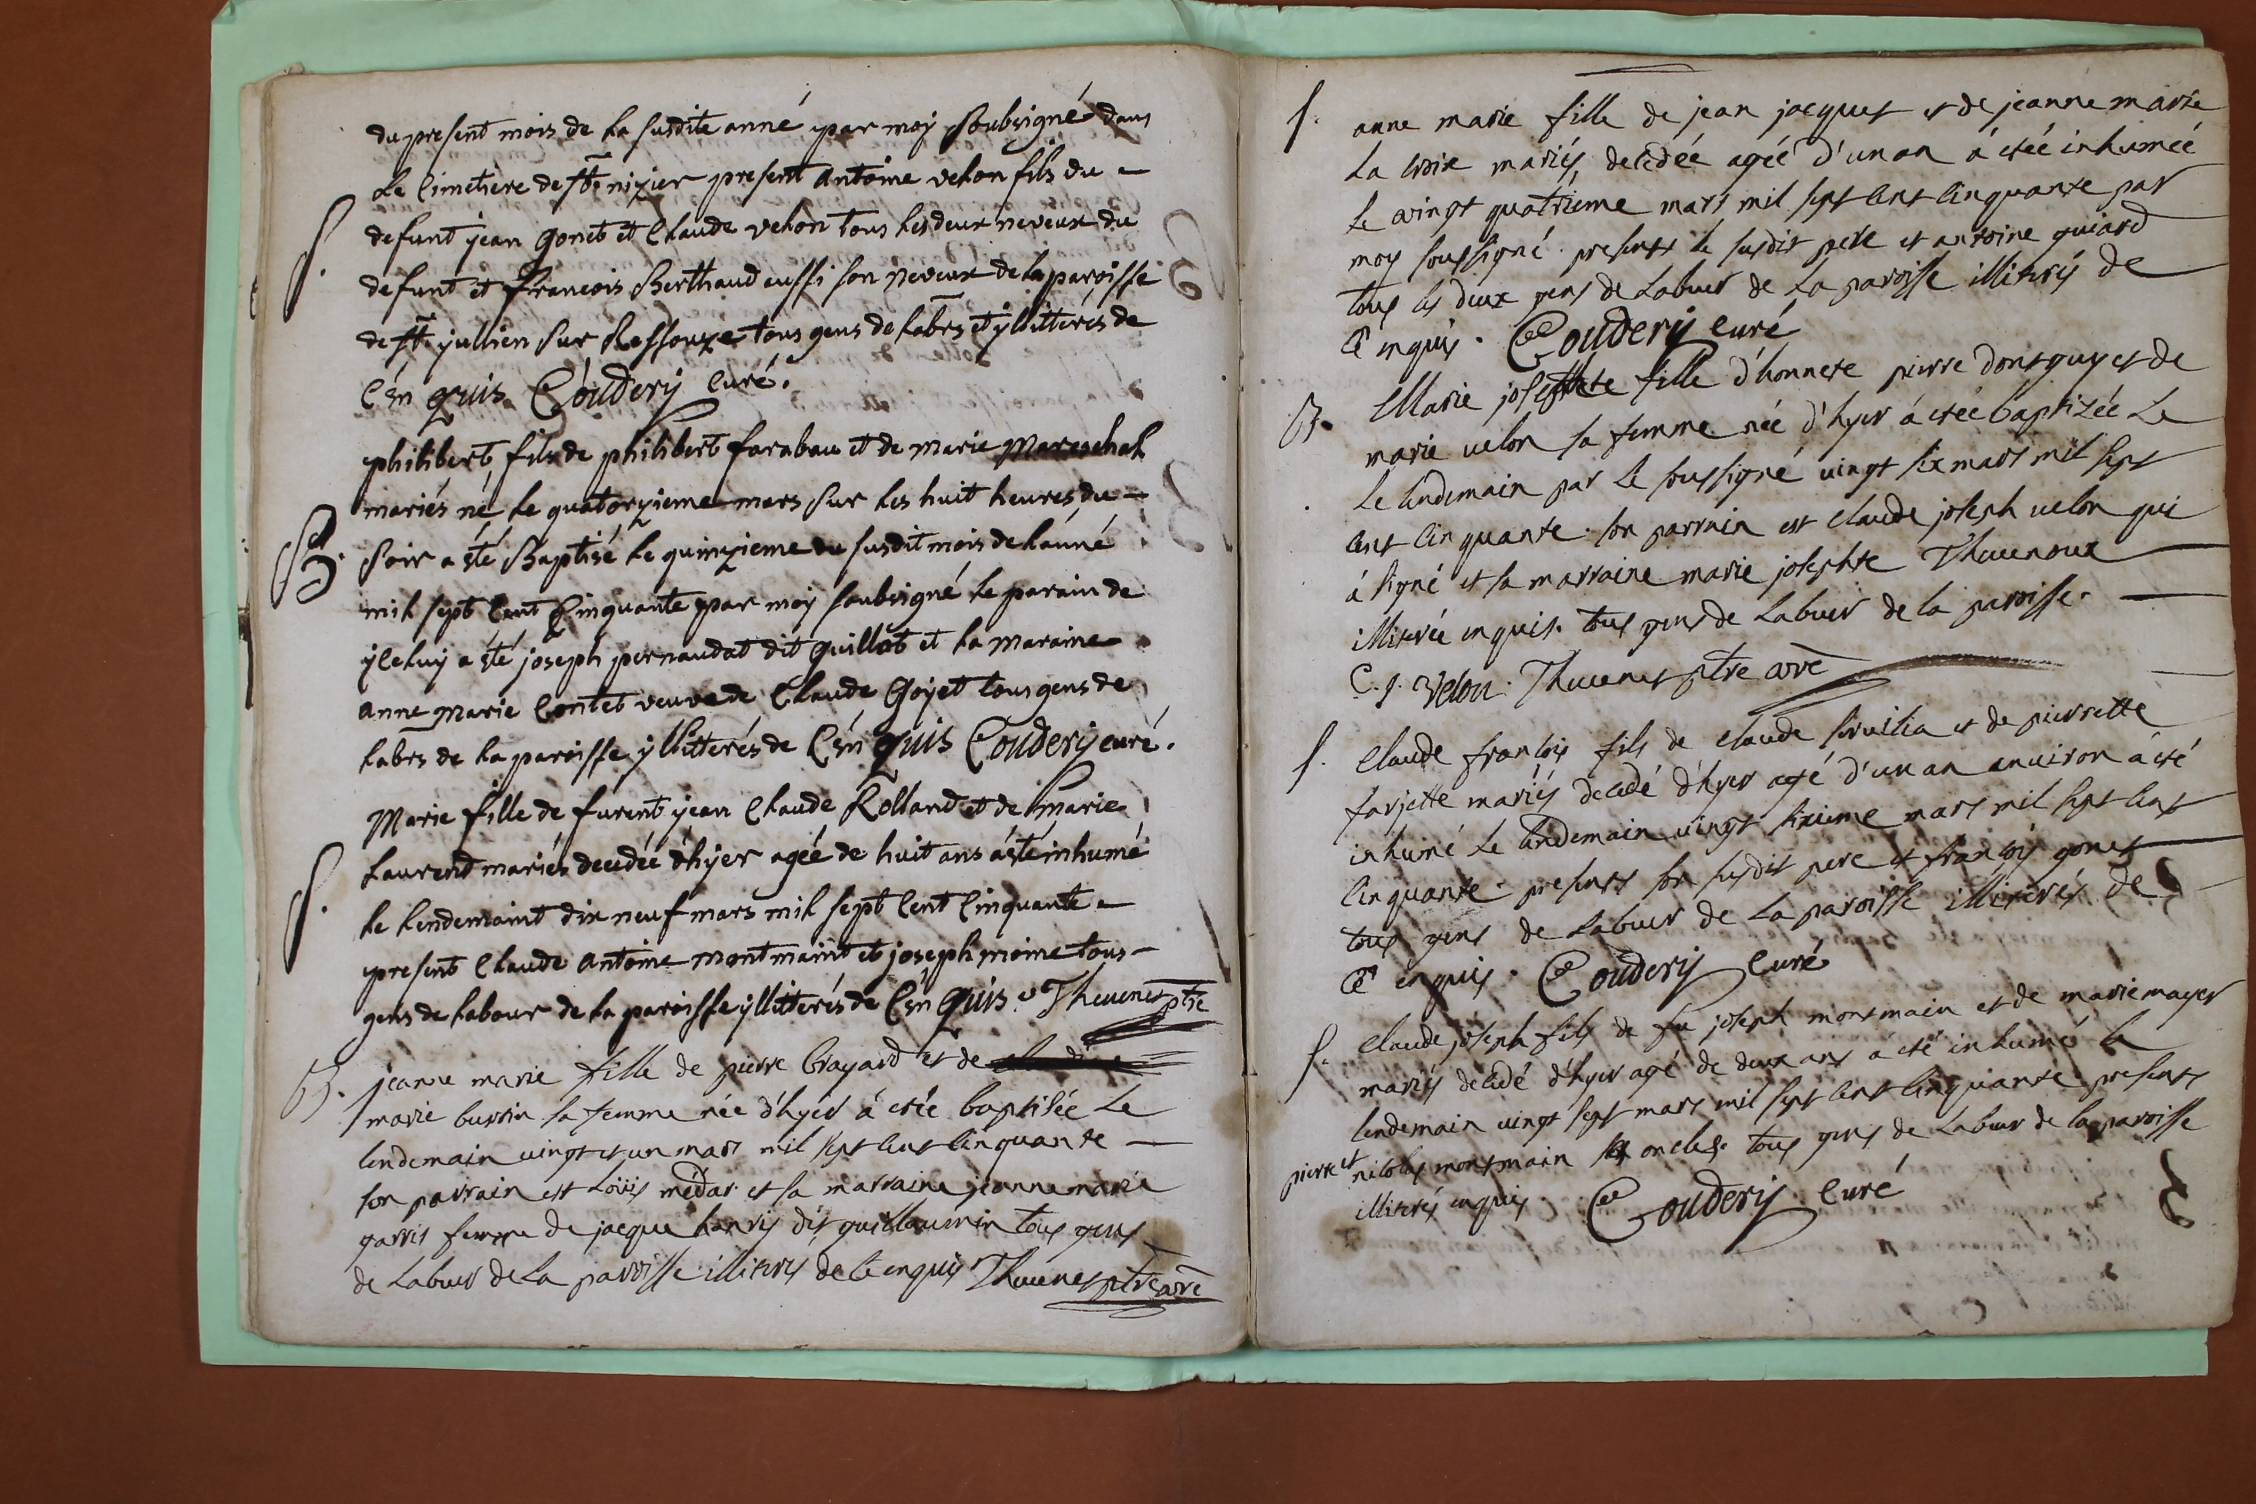 du present mois de la susdite anné par moy soubsigné dans
Le Cimetiere de st nizier present antoine velon fils du
S.
defunt jean gonet et Claude velon tous les deux neveux du
defunt et francois Berthaud aussi son neveux de la paroisse
de st jullien sur Ressouze tous gens de labrs et yllitterés de
Cén quis Couderij Curé.
philibert fils de philibert farabau et de marie Mareschal
mariés né le quatorzieme mars sur les huit heures du
B.
soir a sté Baptisé le quinzieme du susdit mois de lanné
mil sept Cent Cinquante par moy soubsigné le parain de
yceluy a sté joseph pernaudat dit guillot et la maraine
anne marie Contet veuve de Claude Goyet tous gens de
labrs de la paroisse yllitterés de Cén quis Couderij curé.
Marie fille de furent jean Claude Rolland et de marie
Laurend mariés decedée d'hijer agée de huit ans a sté inhumé
S.
le lendemaint dix neuf mars mil sept Cent Cinquante
present Claude antoine montmaint et joseph moine tous
gens de labour de la paroisse yllitterés de Cén quis. Thevenet ptre
B.
jeanne marie fille de pierre brayard et de
marie burrin sa femme née d'hyer á etée baptisée Le
lendemain vingt et un mars mil sept cent cinquante
son parrain est Loüis médar et sa marraine jeanne marie
garris femme de jacque hanrij dit guillaumin tous gens
de Labeur de La paroisse illiterés de ce enquis Thevenet ptre
S.
anne marie fille de jean jacques et de jeanne marie
La croix mariés, decedée agée d'un an á etée inhumée
Le vingt quatrieme mars mil sept cent cinquante par
moy soussigné. presents le susdit pere et antoine guiard
tous les deux gens de Labeur de La paroisse illiterés de
ce enquis. Couderij curé
B.
Marie josephte fille d'honnete pierre dontguy et de
marie velon sa femme née d'hyer á etée baptizée Le
Le lendemain par Le soussigné vingt six mars mil sept
cent cinquante. son parrain est claude joseph velon qui
á signé et sa marraine marie josephte Thevenoux
illiterée enquise. tous gens de Labeur de la paroisse.
C. j. velon. Thevenet ptre
S.
Claude françois fils de claude servilia et de pierrette
farjette mariés decedé d'hyer agé d'un an anuiron á eté
inhumé Le lendemain vingt sixieme mars mil sept cent
cinquante. presents son susdit pere et françois gonet
tous gens de Labeur de La paroisse illiterés de
ce enquis. Couderij Curé
S.
Claude joseph fils de feu joseph montmain et de marie mayer
mariés decedé d'hyer agé de deux ans á eté inhumé le
lendemain vingt sept mars mil sept cent cinquante. presents
pierre et nicolas montmain oncles. tous gens de Labeur de la paroisse
illiterés enquis Couderij Curé